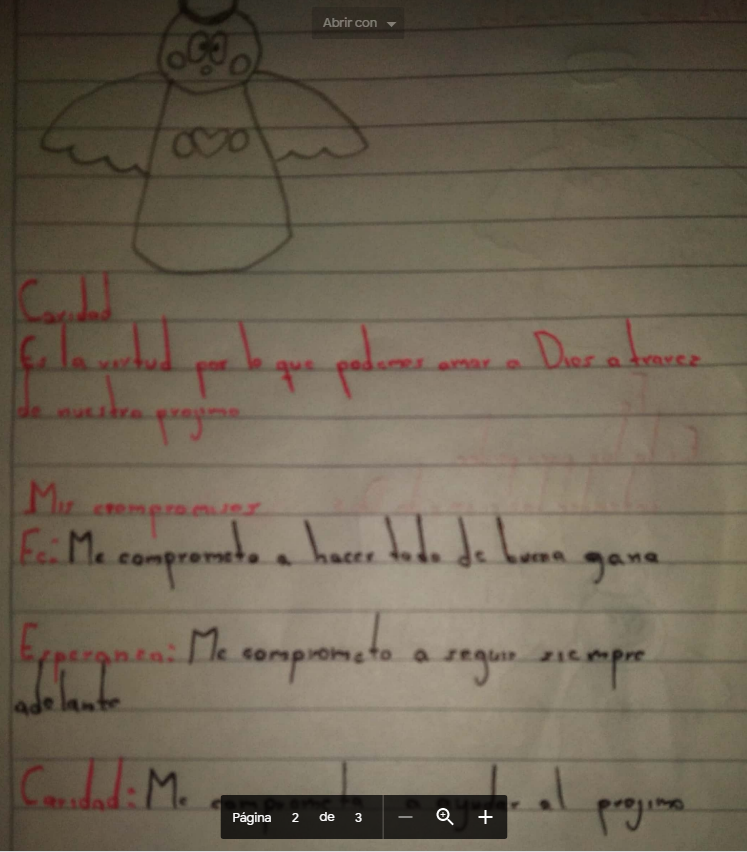 Abrir con
Caridad
Es la virtud por lo que podemos amar a Dios a travez
de nuestro projimo
Mis compromisos
Fe: Me comprometo a hacer todo de buena gana
Esperanza: Me comprometo a seguir siempre
adelante
Caridad: Me comprometo a ayudar al projimo
Página 2 de 3